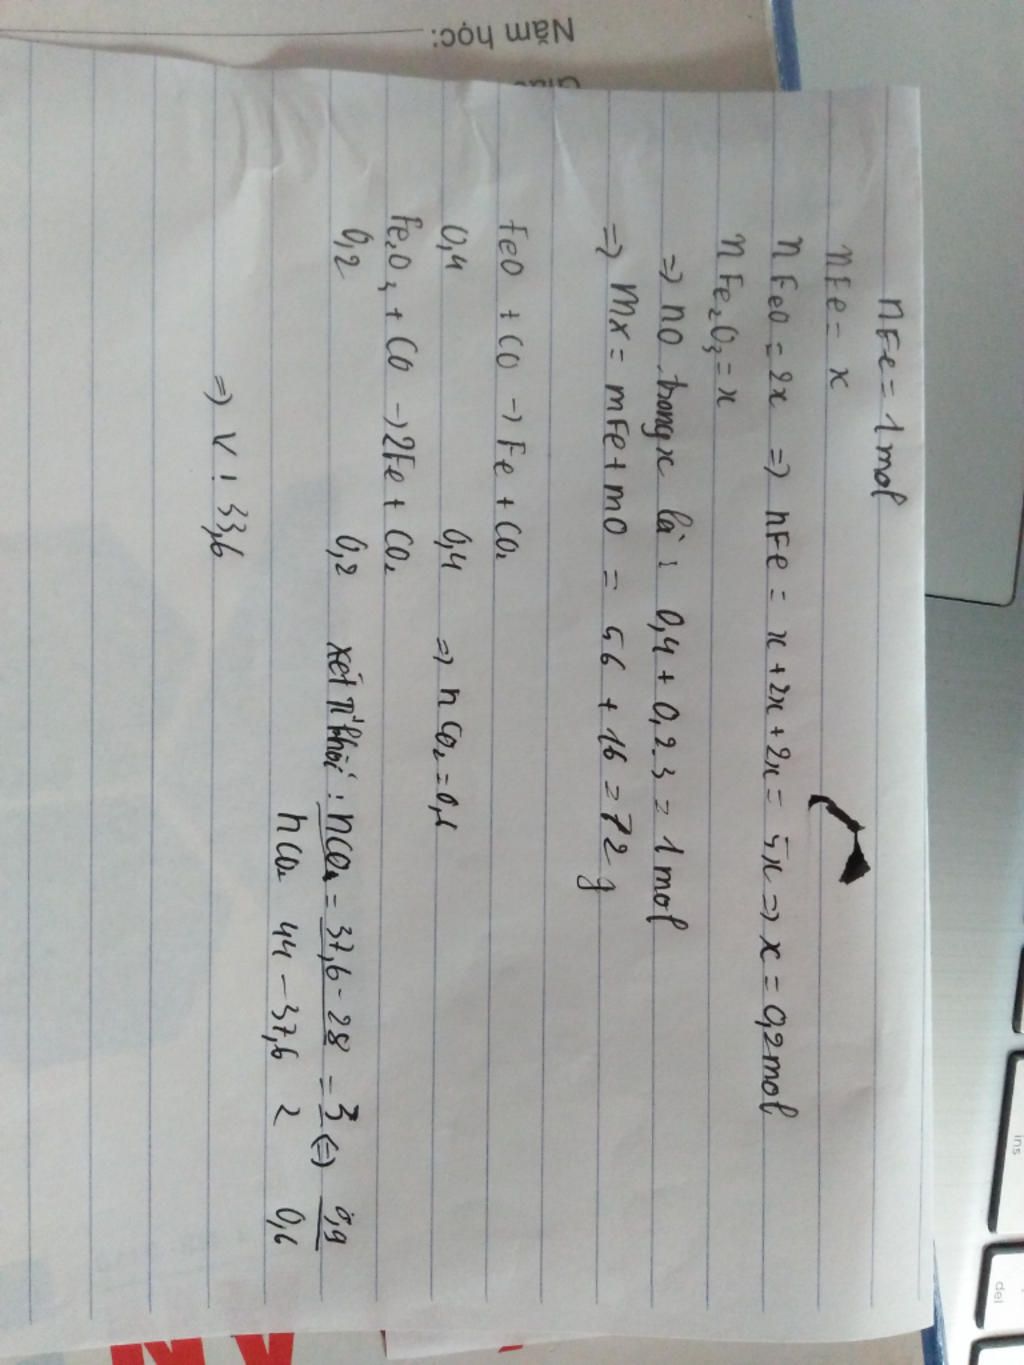 nFe = 1 mol
nFe = x
nFeO = 2x => nFe = x + 2x + 2x = 5x => x = 0,2 mol
nFe2O3 = x
=> nO trong x là : 0,4 + 0,2.3 = 1 mol
=> mx = mFe + mO = 56 + 16 = 72 g
FeO + CO -> Fe + CO2
0,4 0,4 => nCO2 = 0,6
Fe2O3 + CO -> 2Fe + CO2
0,2 0,2 xét khí : nCO2 = 37,6 - 28 = 3 <=> 0,9
nCO 44 - 37,6 2 0,6
=> V : 33,6
Năm học:
ins
del